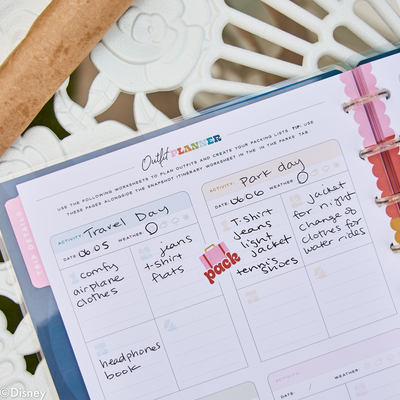 Outfit PLANNER
USE THE FOLLOWING WORKSHEETS TO PLAN OUTFITS AND CREATE YOUR PACKING LISTS. TIP: USE
THESE PAGES ALONGSIDE THE SNAPSHOT ITINERARY WORKSHEET IN THE IN THE PARKS TAB.
TRIP DETAILS
ACTIVITY: Travel Day
DATE: 06/05 WEATHER:
comfy
airplane
clothes
jeans
t-shirt
flats
headphones
book
ACTIVITY: Park day
DATE: 06/06 WEATHER:
T-shirt
jeans
light
jacket
tennis
shoes
jacket
for night
change of
clothes for
water rides
pack
ACTIVITY:
DATE: / WEATHER:
©Disney